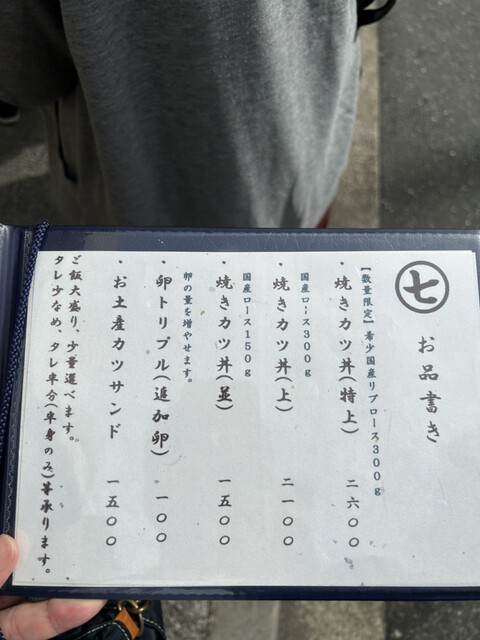 七
お品書き
【数量限定】希少国産リブロース300g
・焼きカツ丼(特上) 二六〇〇
国産ロース300g
・焼きカツ丼(上) 二一〇〇
国産ロース150g
・焼きカツ丼(並) 一五〇〇
卵の量を増やせます。
・卵トリプル(追加卵) 一〇〇
・お土産カツサンド 一五〇〇
ご飯大盛り、少量選べます。
タレ少なめ、タレ半分(半身のみ)等承ります。